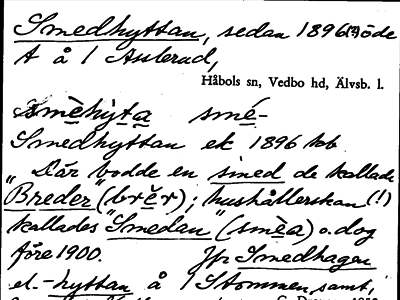 Smedhyttan, sedan 1896(?) öde
t å 1 Asslerud,
Håbols sn, Vedbo hd, Älvsb. l.
smèhỳt̲a smé-
Smedhyttan ek 1896 tab
Där bodde en smed de kallade
"Breder" (brěr); hushållerskan (!)
kallades "Smedan" (smèa) o. dog
före 1900. Jfr Smedhagen
et. -hyttan å 1 Stommen, samt,